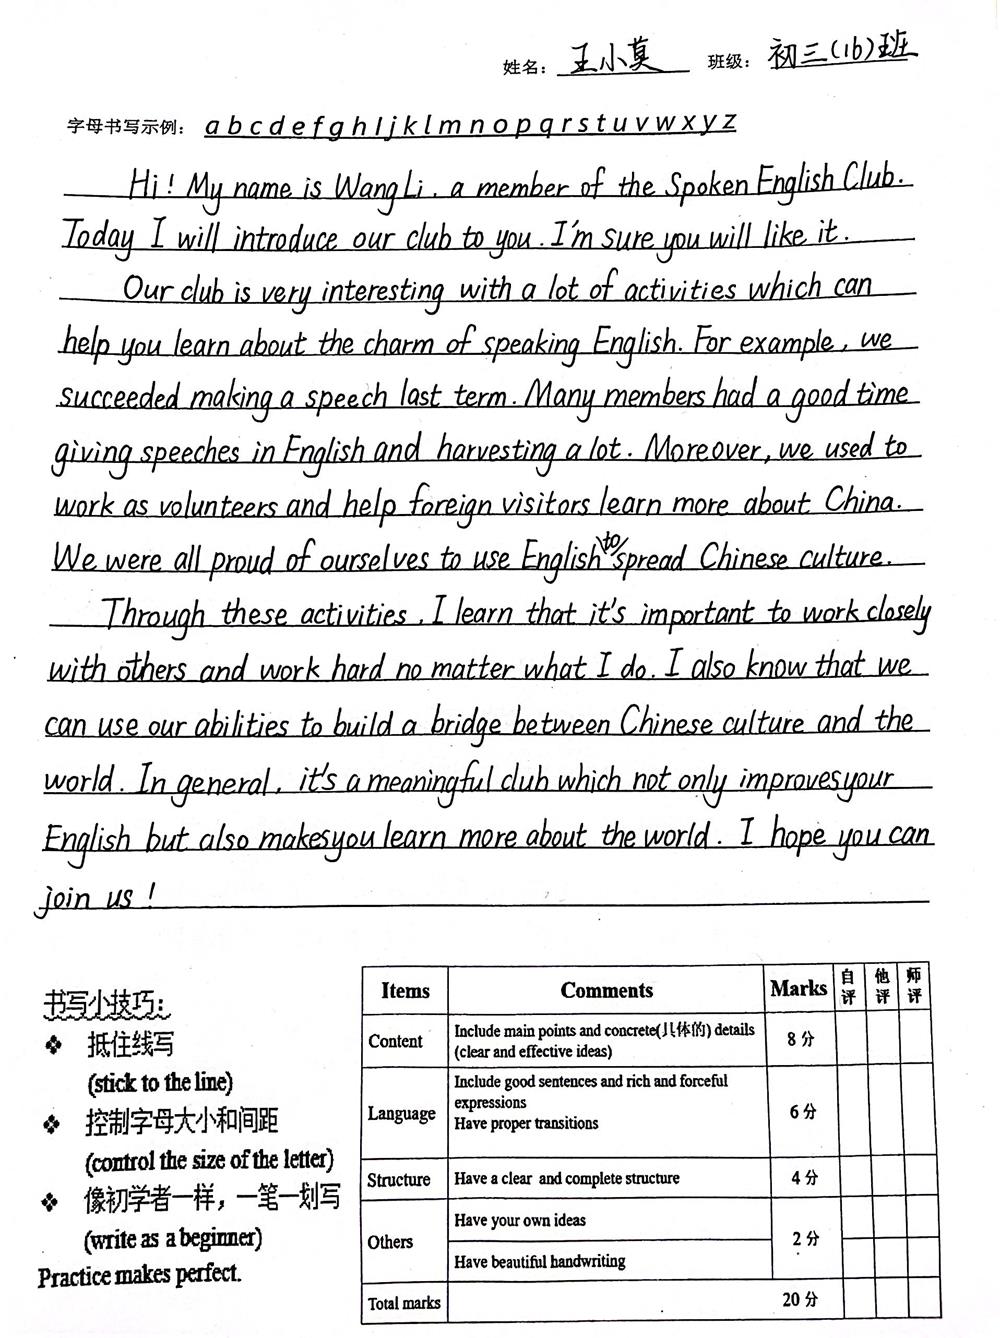 姓名: 王小莫 班级: 初三(16)班
字母书写示例: a b c d e f g h I j k l m n o p q r s t u v w x y z
Hi! My name is Wang Li, a member of the Spoken English Club.
Today I will introduce our club to you. I'm sure you will like it.
Our club is very interesting with a lot of activities which can
help you learn about the charm of speaking English. For example, we
succeeded making a speech last term. Many members had a good time
giving speeches in English and harvesting a lot. Moreover, we used to
work as volunteers and help foreign visitors learn more about China.
We were all proud of ourselves to use English to spread Chinese culture.
Through these activities, I learn that it's important to work closely
with others and work hard no matter what I do. I also know that we
can use our abilities to build a bridge between Chinese culture and the
world. In general, it's a meaningful club which not only improves your
English but also makes you learn more about the world. I hope you can
join us!
书写小技巧:
❖ 抵住线写
(stick to the line)
❖ 控制字母大小和间距
(control the size of the letter)
❖ 像初学者一样，一笔一划写
(write as a beginner)
Practice makes perfect.
Items Comments Marks 自评 他评 师评
Content Include main points and concrete(具体的) details (clear and effective ideas) 8 分
Language Include good sentences and rich and forceful expressions
Have proper transitions 6 分
Structure Have a clear and complete structure 4 分
Others Have your own ideas 2 分
Have beautiful handwriting
Total marks 20 分